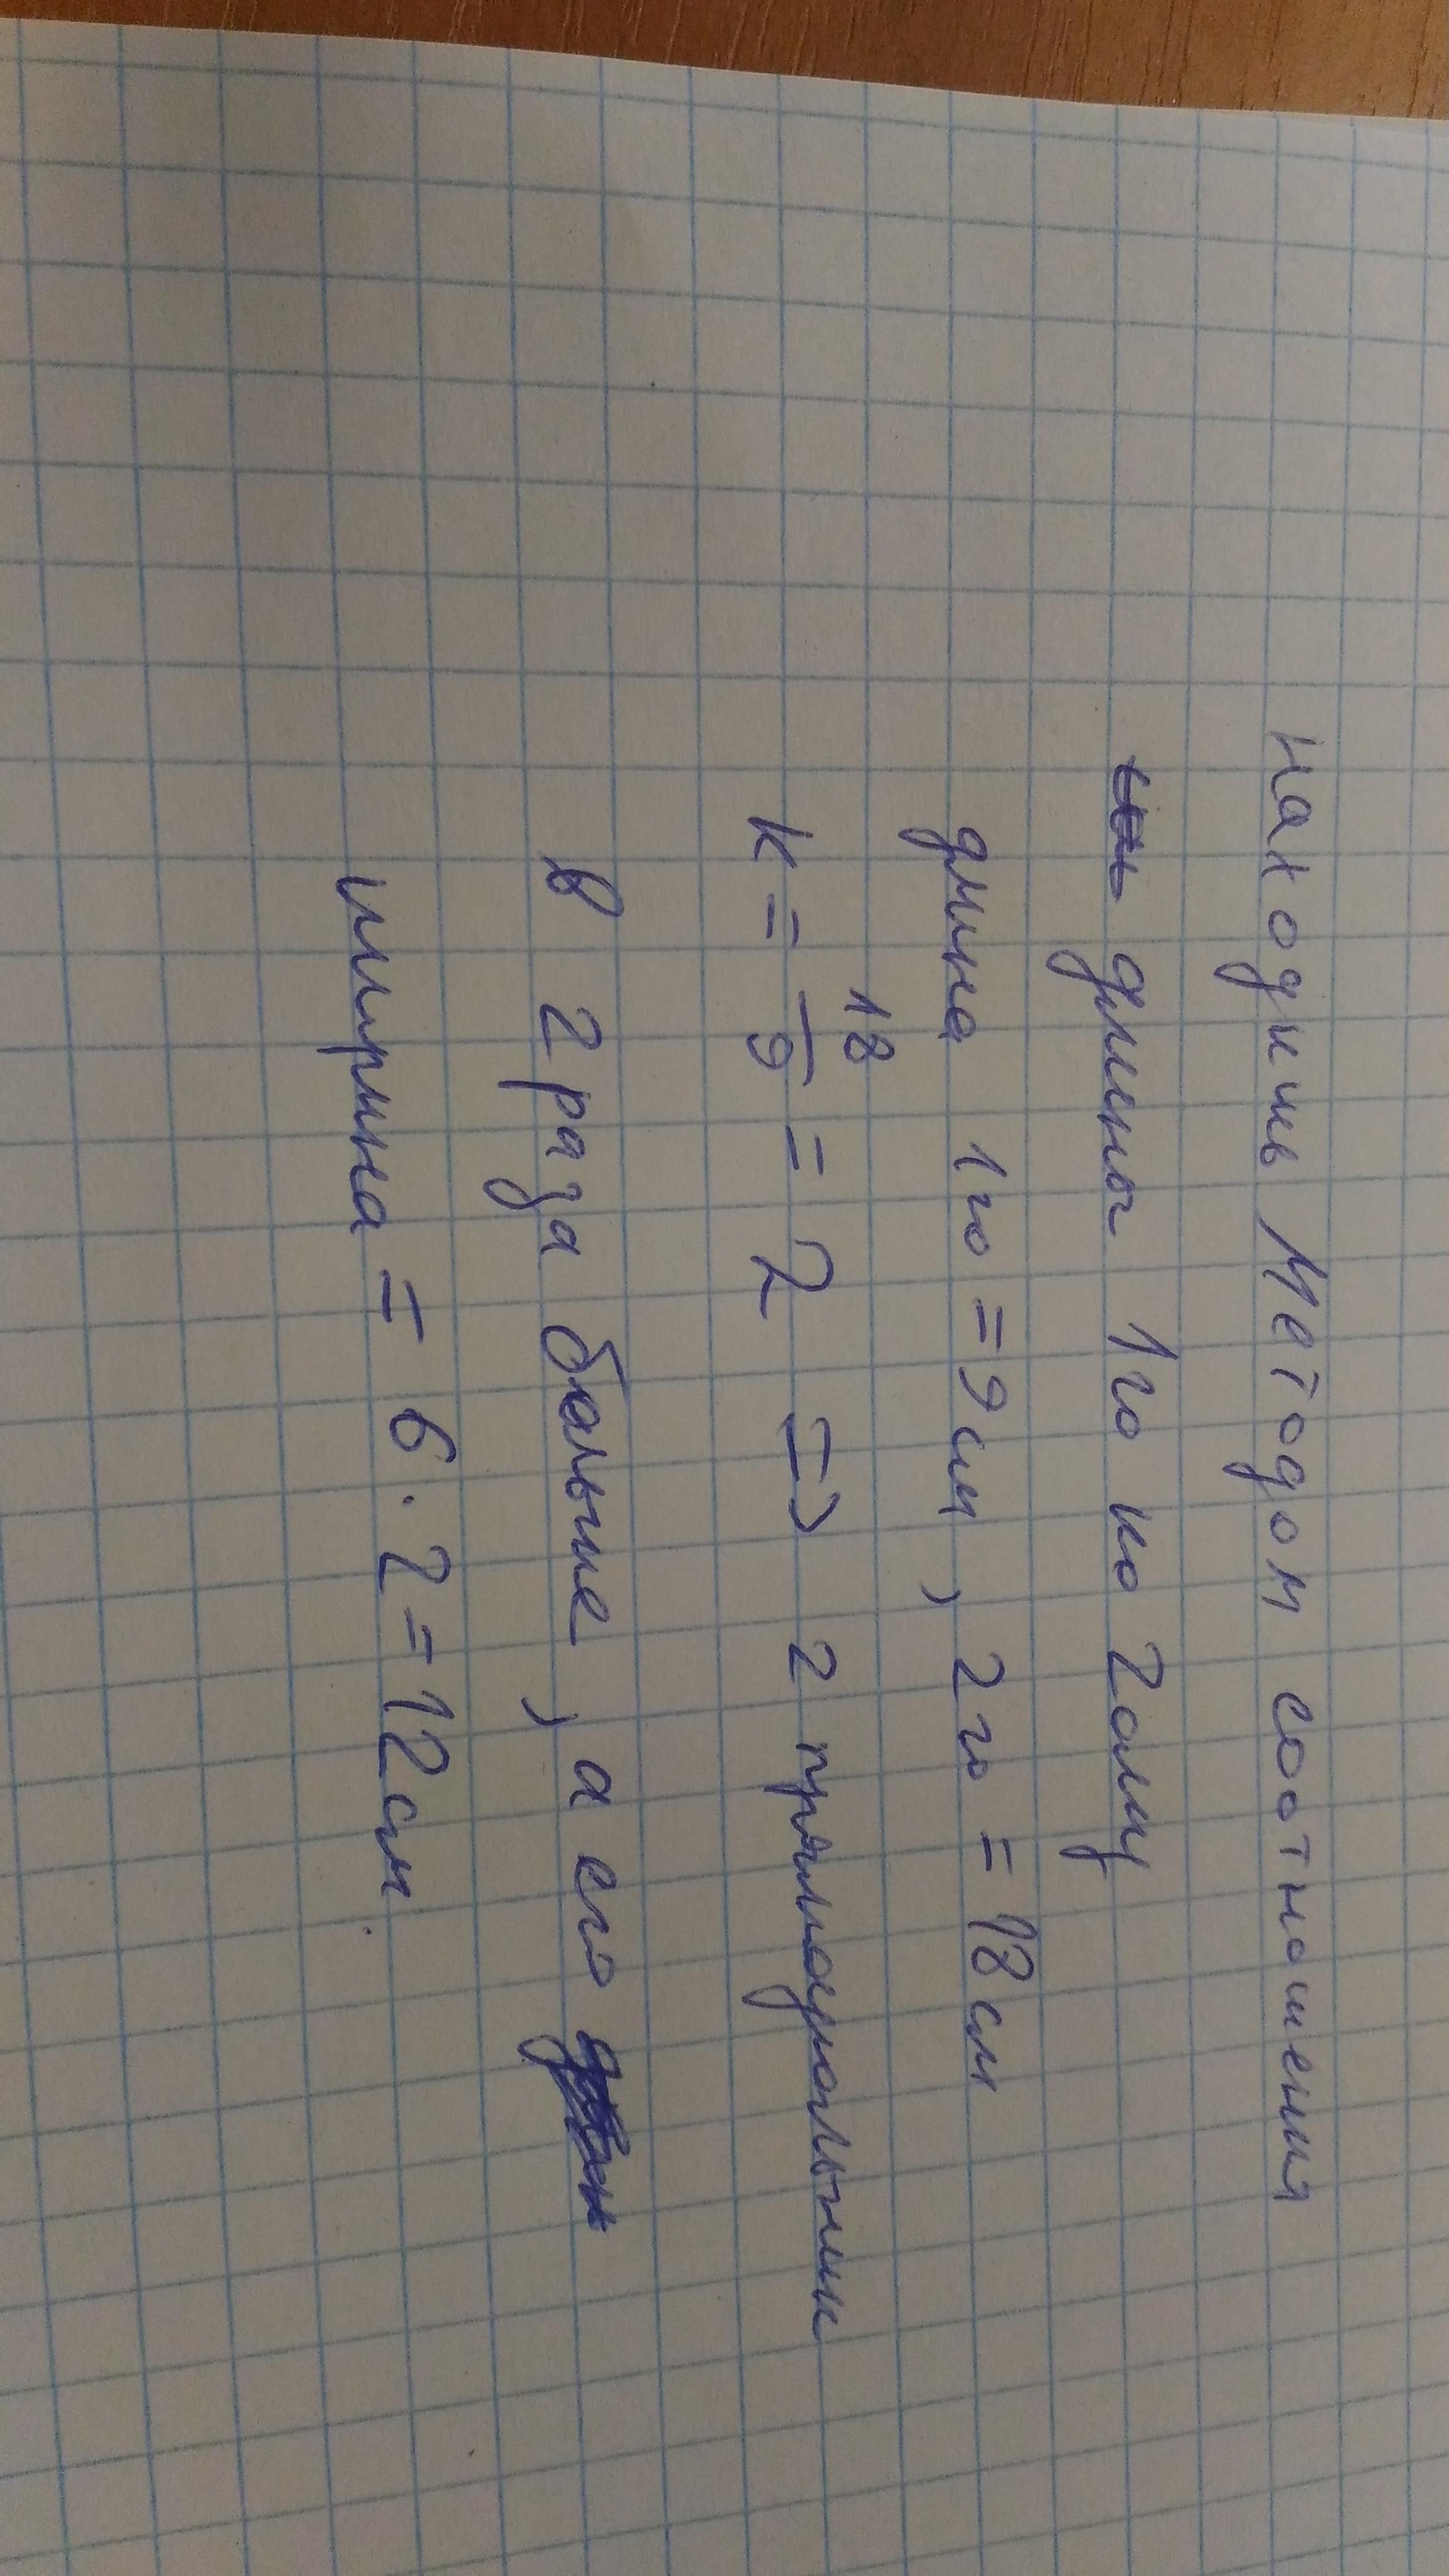 находить методом соотношения
длины 1го ко 2ому
длина 1го = 9 см, 2го = 18 см
k = 18/9 = 2 => 2 прямоугольник
в 2 раза больше, а его
ширина = 6 · 2 = 12 см.